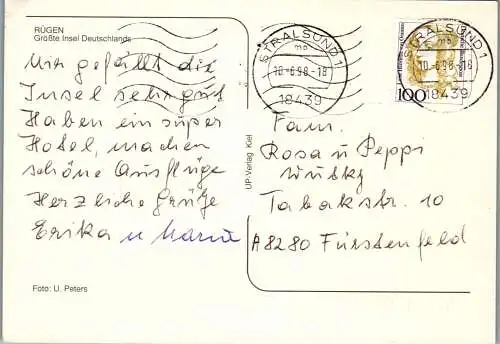 RÜGEN
Größte Insel Deutschlands
Mir gefällt die
Insel sehr gut
Haben ein super
Hotel, machen
schöne Ausflüge
Herzliche Grüße
Erika u Maria
Foto: U. Peters
UP-Verlag Kiel
STRALSUND 1
mb
10.-6.98.-18
18439
STRALSUND 1
mb
10.-6.98.-18
18439
100
Fam.
Rosa u Peppi
Wutsky
Tabakstr. 10
A 8280 Fürstenfeld